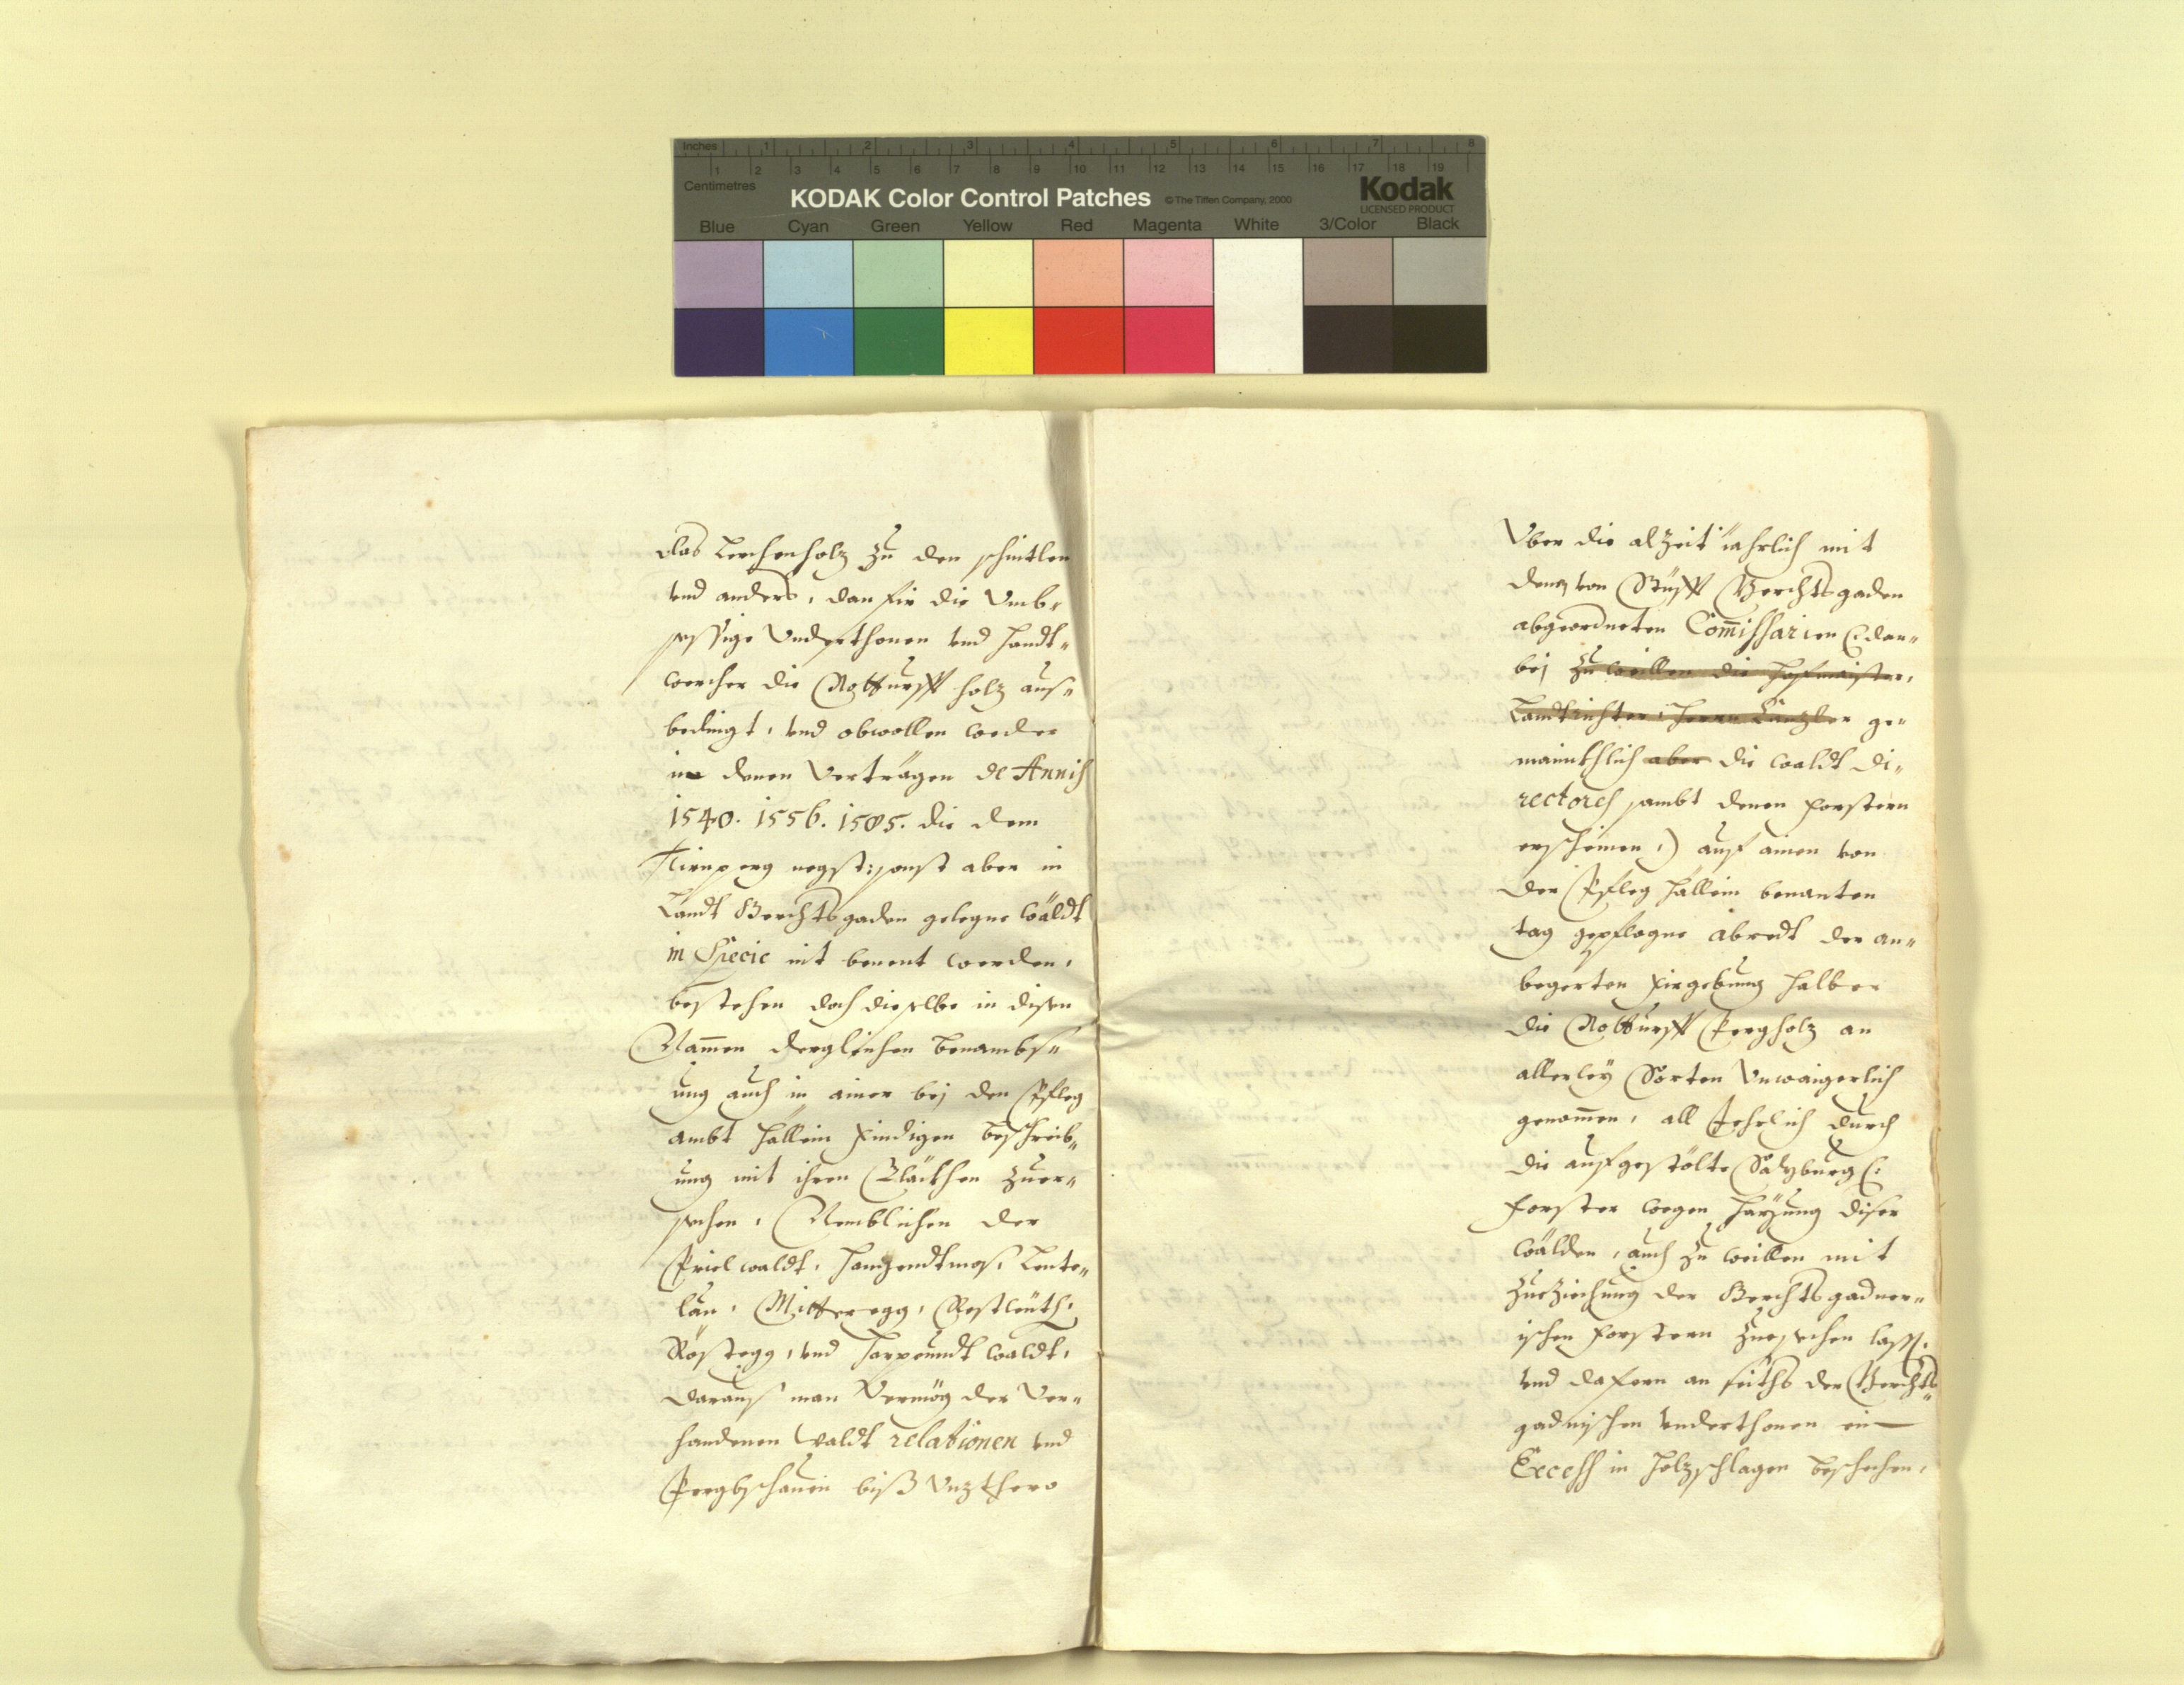 Inches 1 2 3 4 5 6 7 8
1 2 3 4 5 6 7 8 9 10 11 12 13 14 15 16 17 18 19
Centimetres
KODAK Color Control Patches © The Tiffen Company, 2000 Kodak
LICENSED PRODUCT
Blue Cyan Green Yellow Red Magenta White 3/Color Black
das Lerchenholz zu den schintlen
vnd anders, dan fir die Vmb-
sessige Vnderthonen vnd handt-
wercher die Notturfft holz aus-
bedingt, vnd obwollen weder
in denen Verträgen de Annis
1540. 1556. 1585. die dem
Tirnperg negst: sonst aber in
Landt Berchtsgaden gelegne Wäldt
in Specie nit benent werden,
bestehen doch dieselbe in disen
Nammen derglichen benambs-
ung auch in ainer bej den Pfleg
ambt Hällein findigen beschreib-
ung mit ihren zuer-
sehen, Nemblichen der
Prielwaldt,
Mitteregg,
Röstegg, vnd waldt,
daraus man Vermög der Ver-
handenen Waldt relationen vnd
Pergbschauen biß Vnzthero
Vber die alzeit iährlich mit
denen von Stüfft Berchtsgaden
abgeordneten Commissarien (: dar-
bej zu weillen die hofmaister,
Landtrichter, Herrn Canzler ge-
mainkhlich aber die waldt Di-
rectores sambt denen forstern
erscheinen,) auf ainen von
der Pfleg Hällein benanten
tag gepflogne abredt der an-
begerten firgebung halber
die Notturfft Pergholz an
allerley Sorten Vnwaigerlich
genommen, all Jehrlich durch
die aufgestölte Salzburg (:
forster wegen haÿung diser
wälder, auch zu weillen mit
zueziehung der Berchtsgadner-
ischen forstern zuesechen lass(:
vnd dafern an seiths der Berchts-
gadnischen Vnderthonen ein
Excess in holzschlagen beschehen,